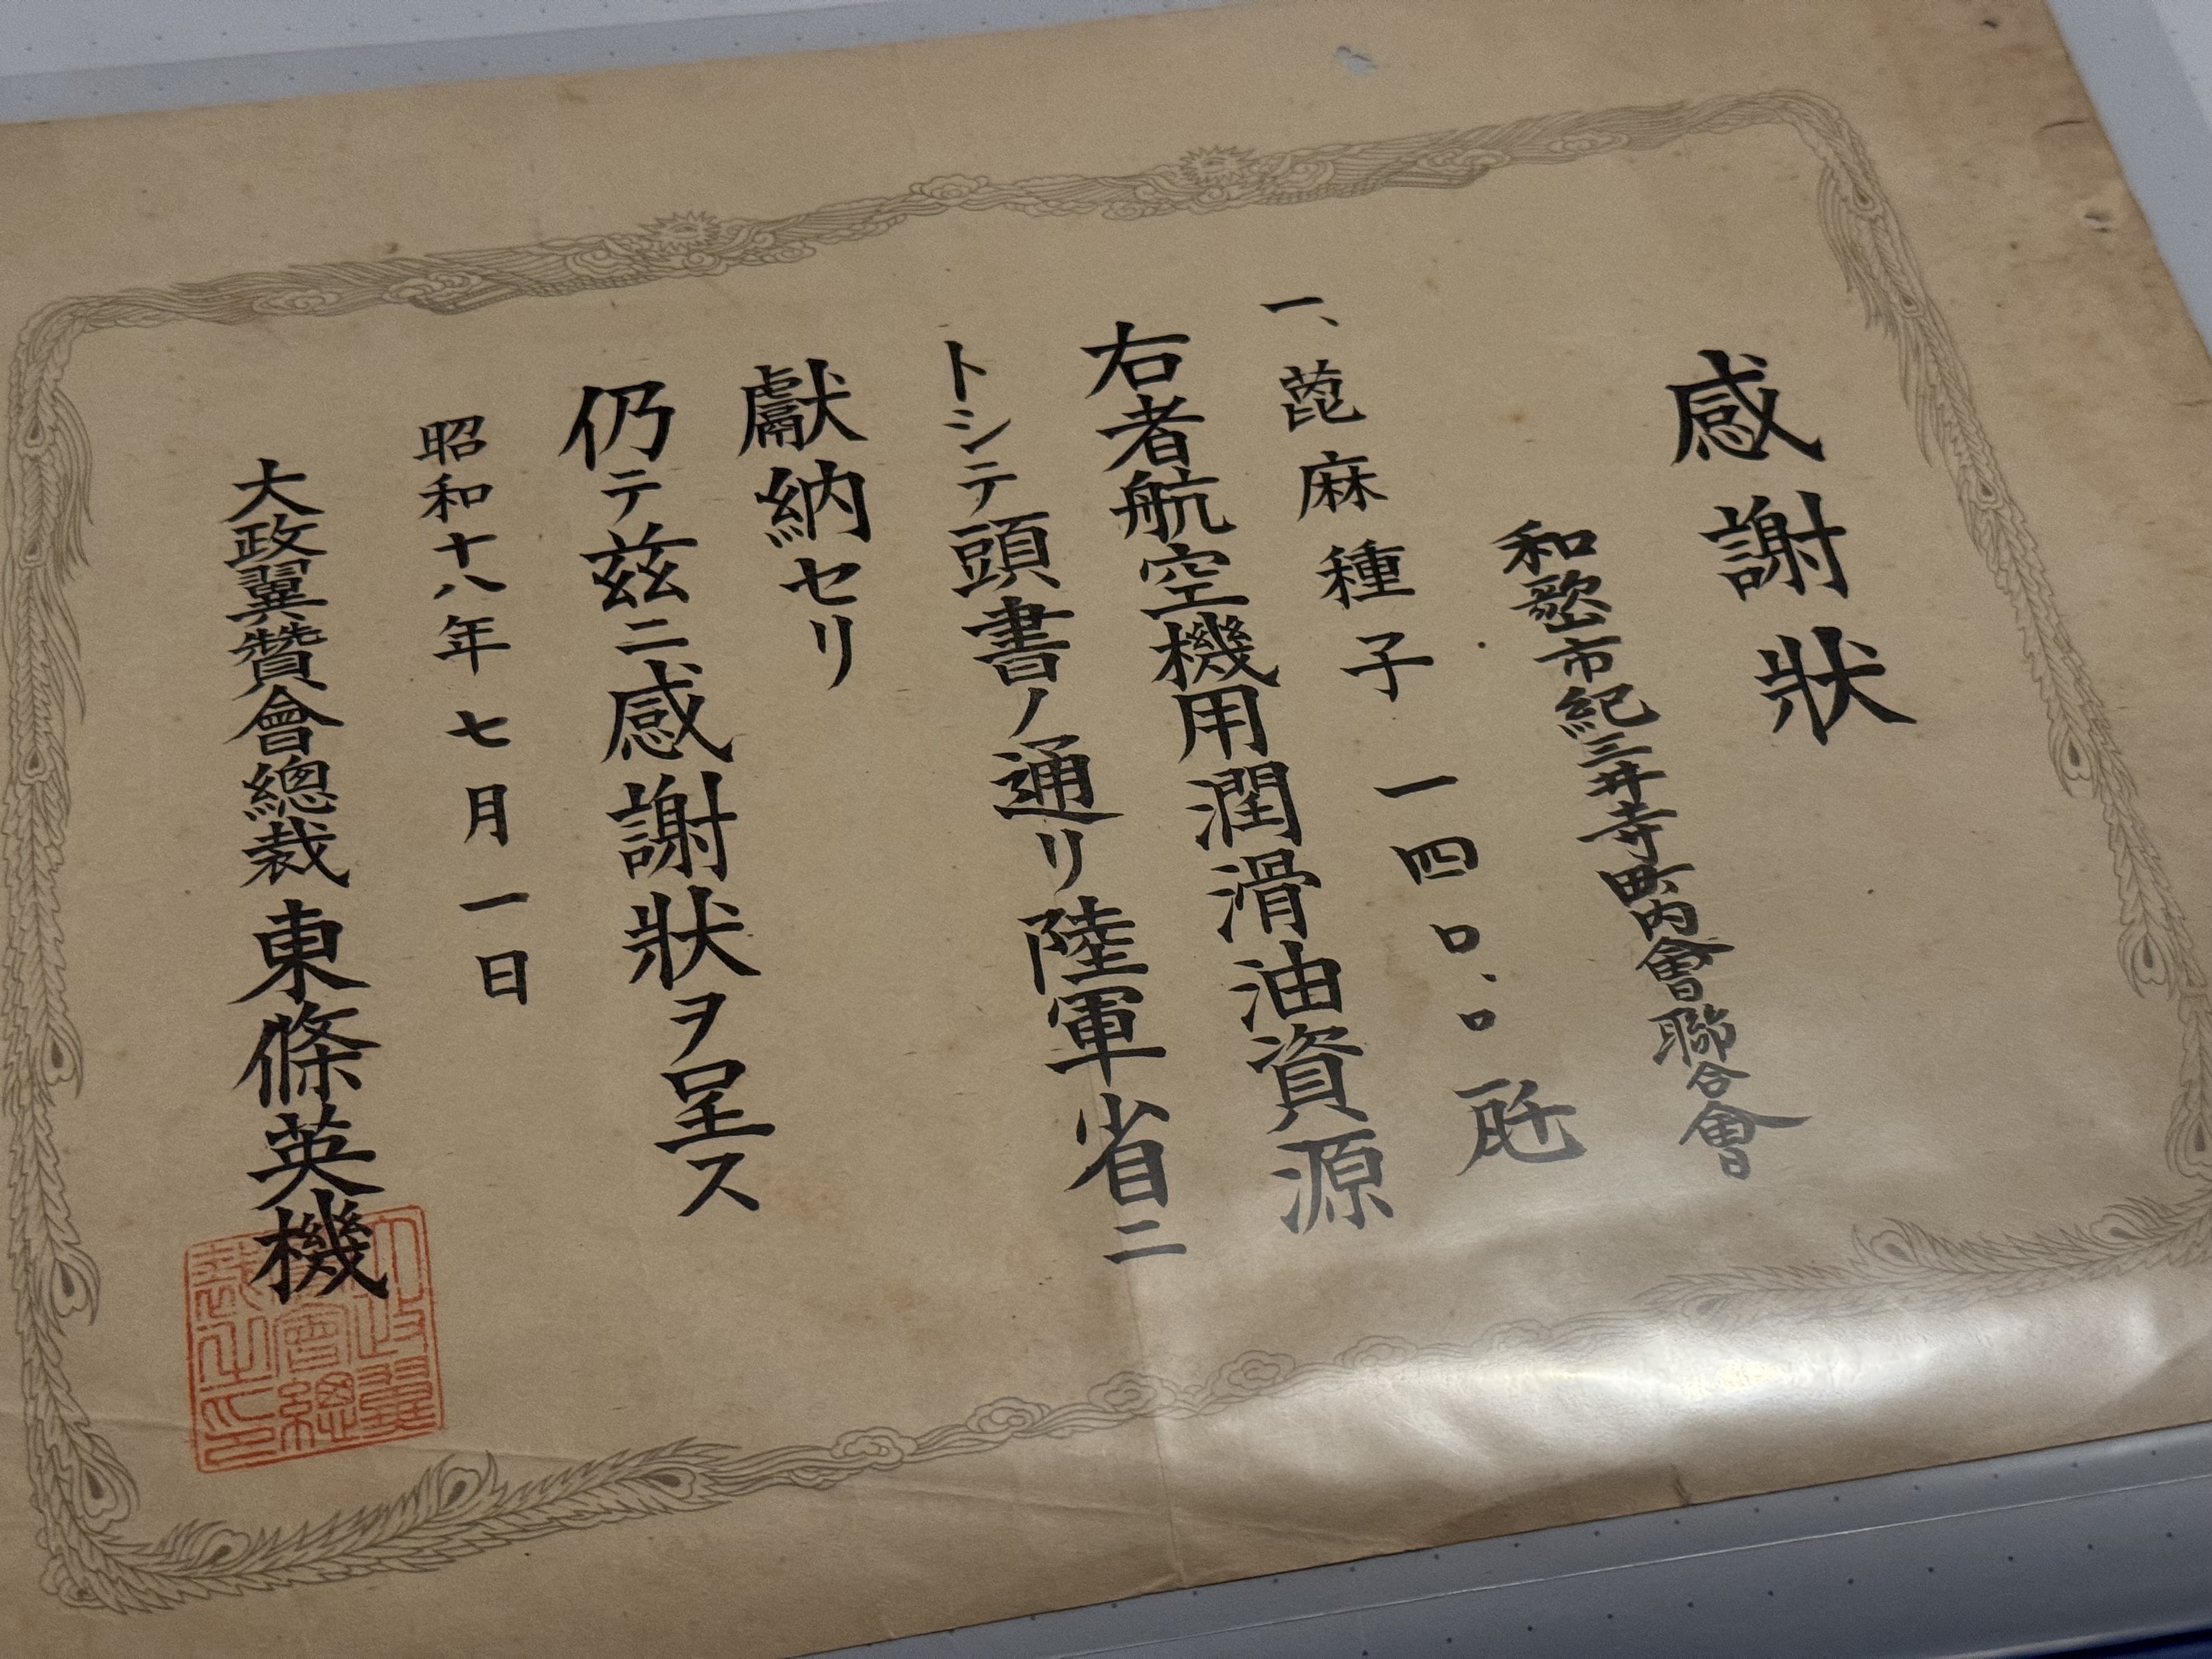 感謝狀
和歌山市紀三井寺町内會聯合會
一、蓖麻種子 一四〇、〇瓩
右者航空機用潤滑油資源
トシテ頭書ノ通リ陸軍省ニ
獻納セリ
仍テ玆ニ感謝狀ヲ呈ス
昭和十八年七月一日
大政翼贊會總裁 東條英機
大政翼贊會總裁之印